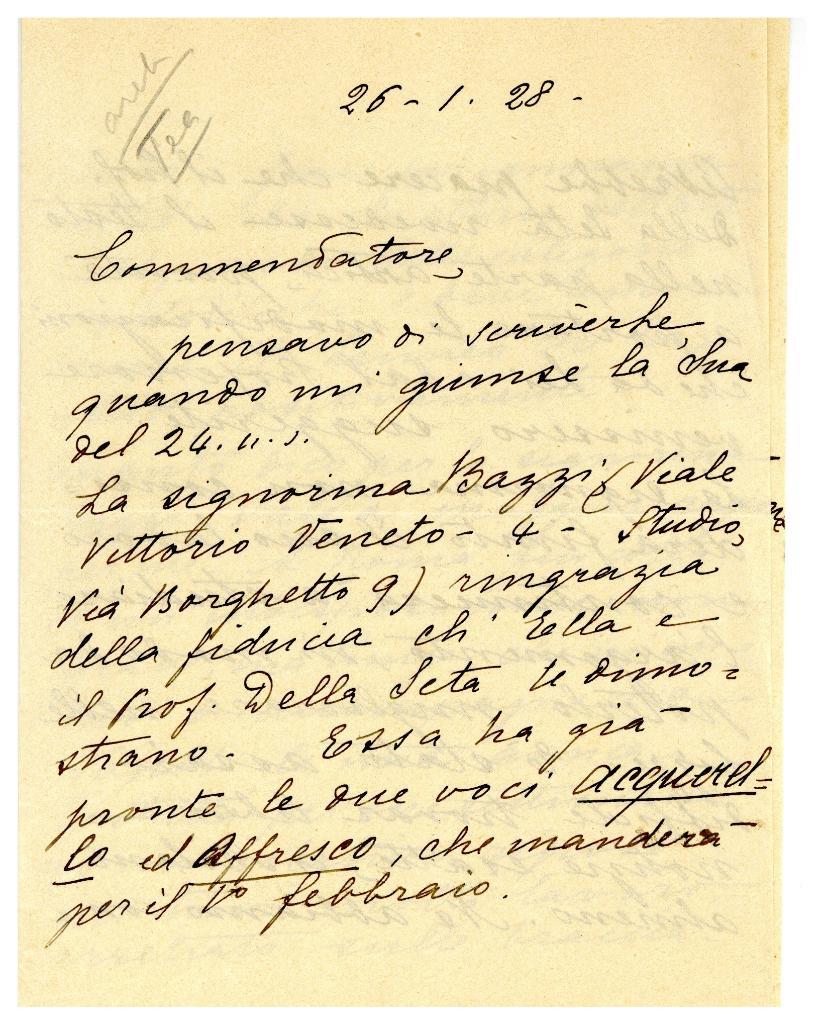 26 - 1. 28 -
Commendatore,
pensavo di scriverLe
quando mi giunse la Sua
del 24. u. s.
La signorina Bazzi (Viale
Vittorio Veneto - 4 - Studio,
Via Borghetto 9) ringrazia
della fiducia ch' Ella e
il Prof. Della Seta le dimo=
strano. Essa ha già
pronte le due voci acquerel=
lo ed Affresco, che manderà
per il 1º febbraio.